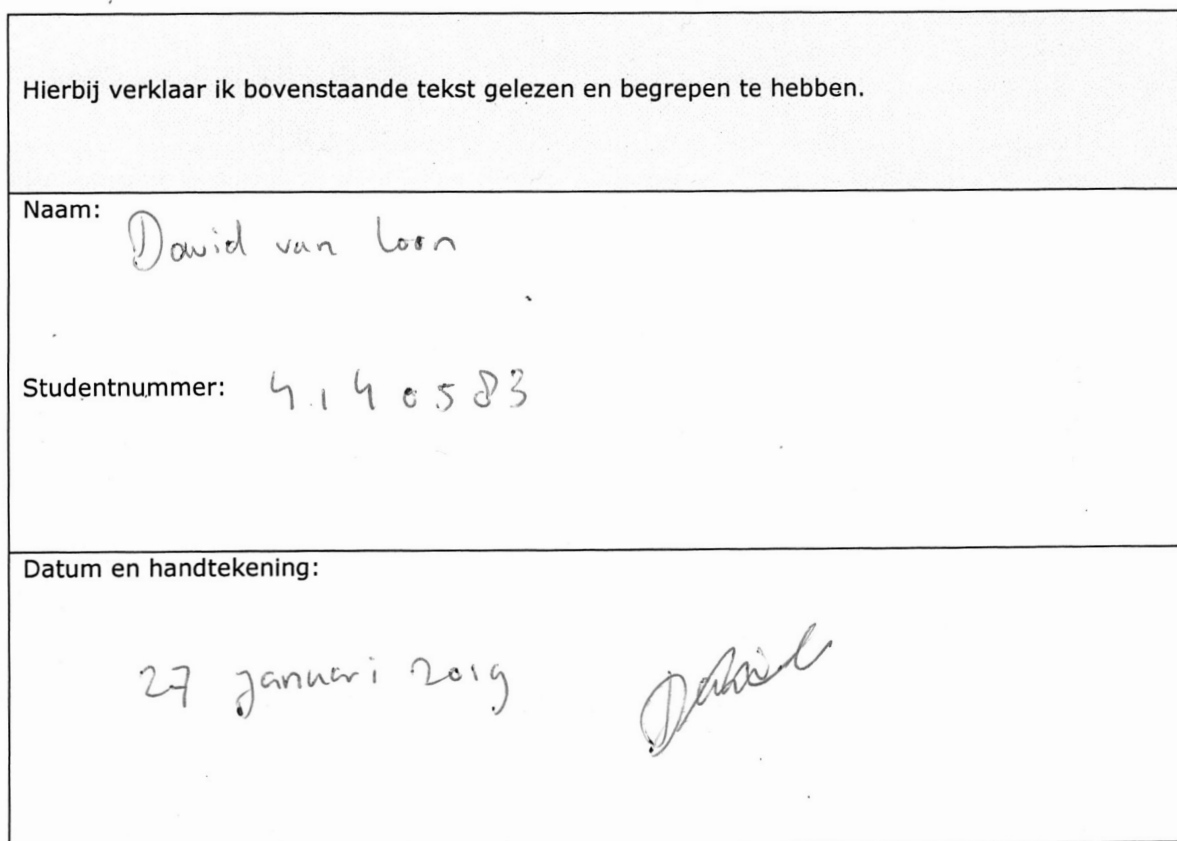 Hierbij verklaar ik bovenstaande tekst gelezen en begrepen te hebben.
Naam: David van Loon
Studentnummer: 4140583
Datum en handtekening:
27 januari 2019 David